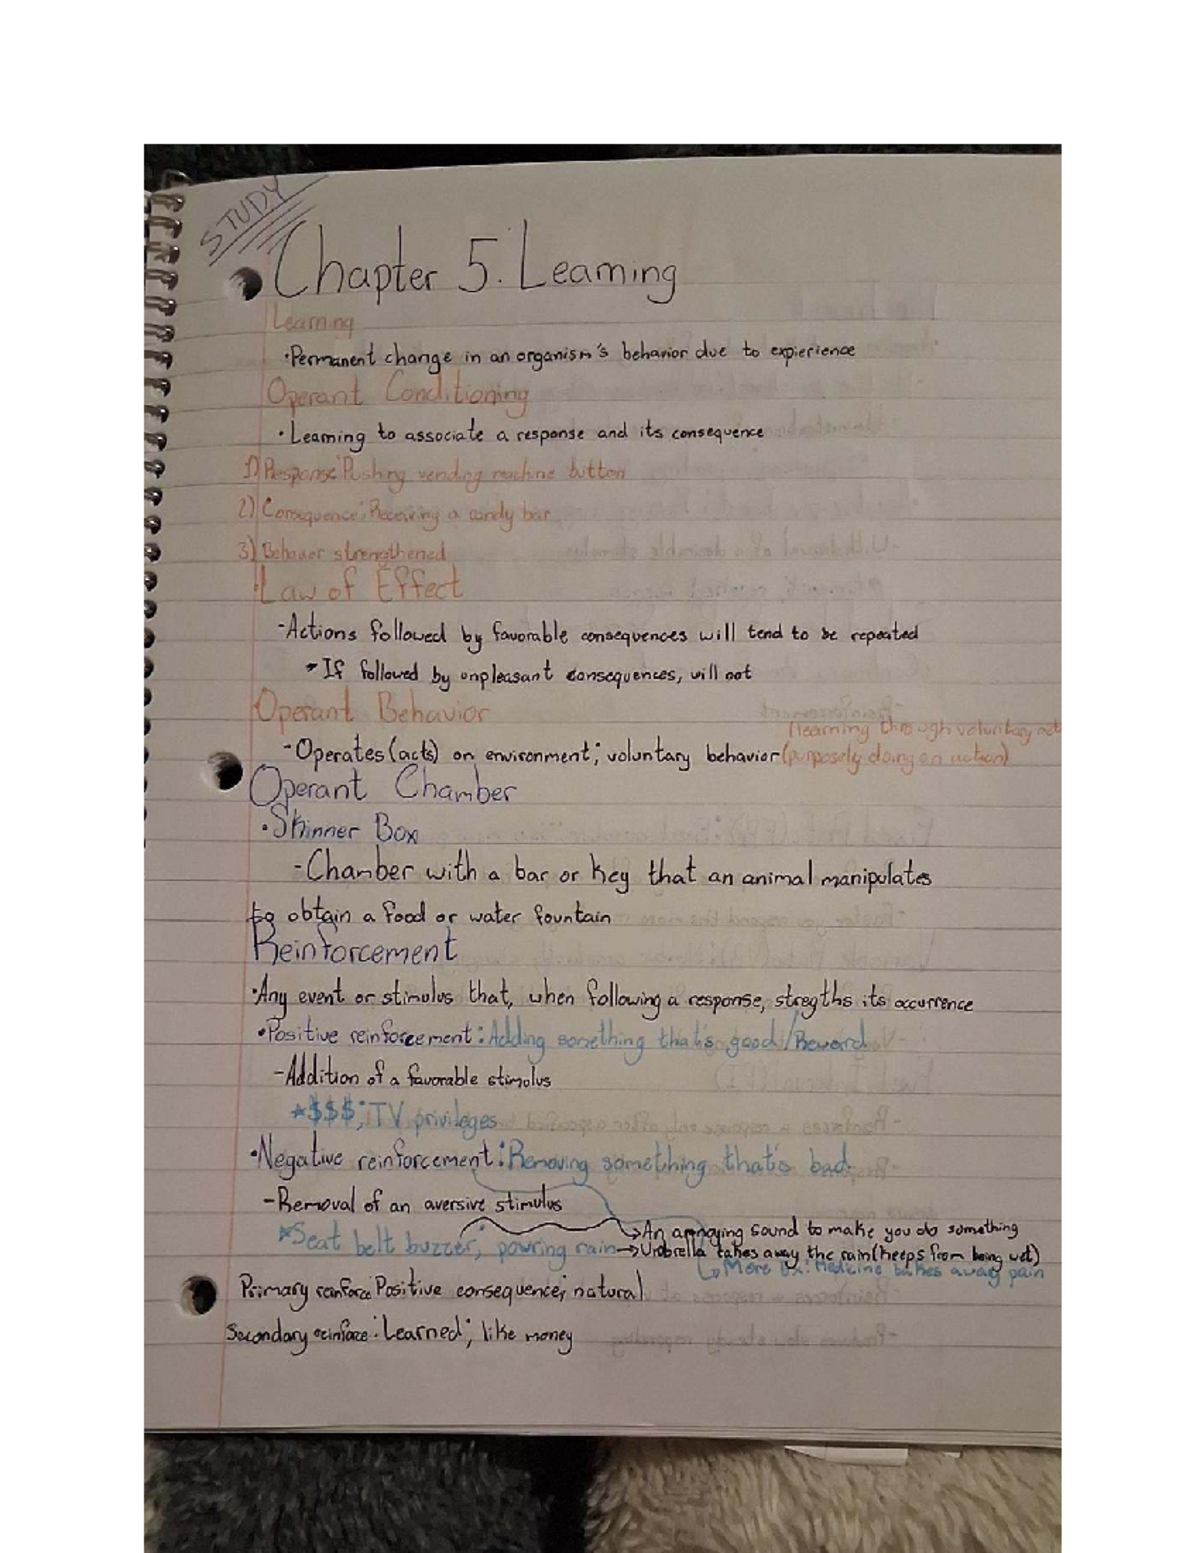 STUDY
Chapter 5. Learning
Learning
•Permanent change in an organism's behavior due to expierience
Operant Conditioning
•Learning to associate a response and its consequence
1) Response: Pushing vending machine button
2) Consequence: Receiving a candy bar
3) Behavior strengthened
Law of Effect
-Actions followed by favorable consequences will tend to be repeated
If followed by unpleasant consequences, will not
Operant Behavior
(learning through voluntary
-Operates (acts) on environment; voluntary behavior (purposely doing an action)
Operant Chamber
•Skinner Box
-Chamber with a bar or key that an animal manipulates
to obtain a food or water fountain
Reinforcement
•Any event or stimulus that, when following a response, stregths its occurrence
•Positive reinforcement: Adding something that's good/Reward
-Addition of a favorable stimulus
*$$$; TV privileges
•Negative reinforcement: Removing something that's bad
-Removal of an aversive stimulus
→An annoying sound to make you do something
*Seat belt buzzer; pouring rain→Umbrella takes away the rain (keeps from being wet)
More Ex: Medicine takes away pain
Primary reinforce: Positive consequence; natural
Secondary reinforce: Learned; like money